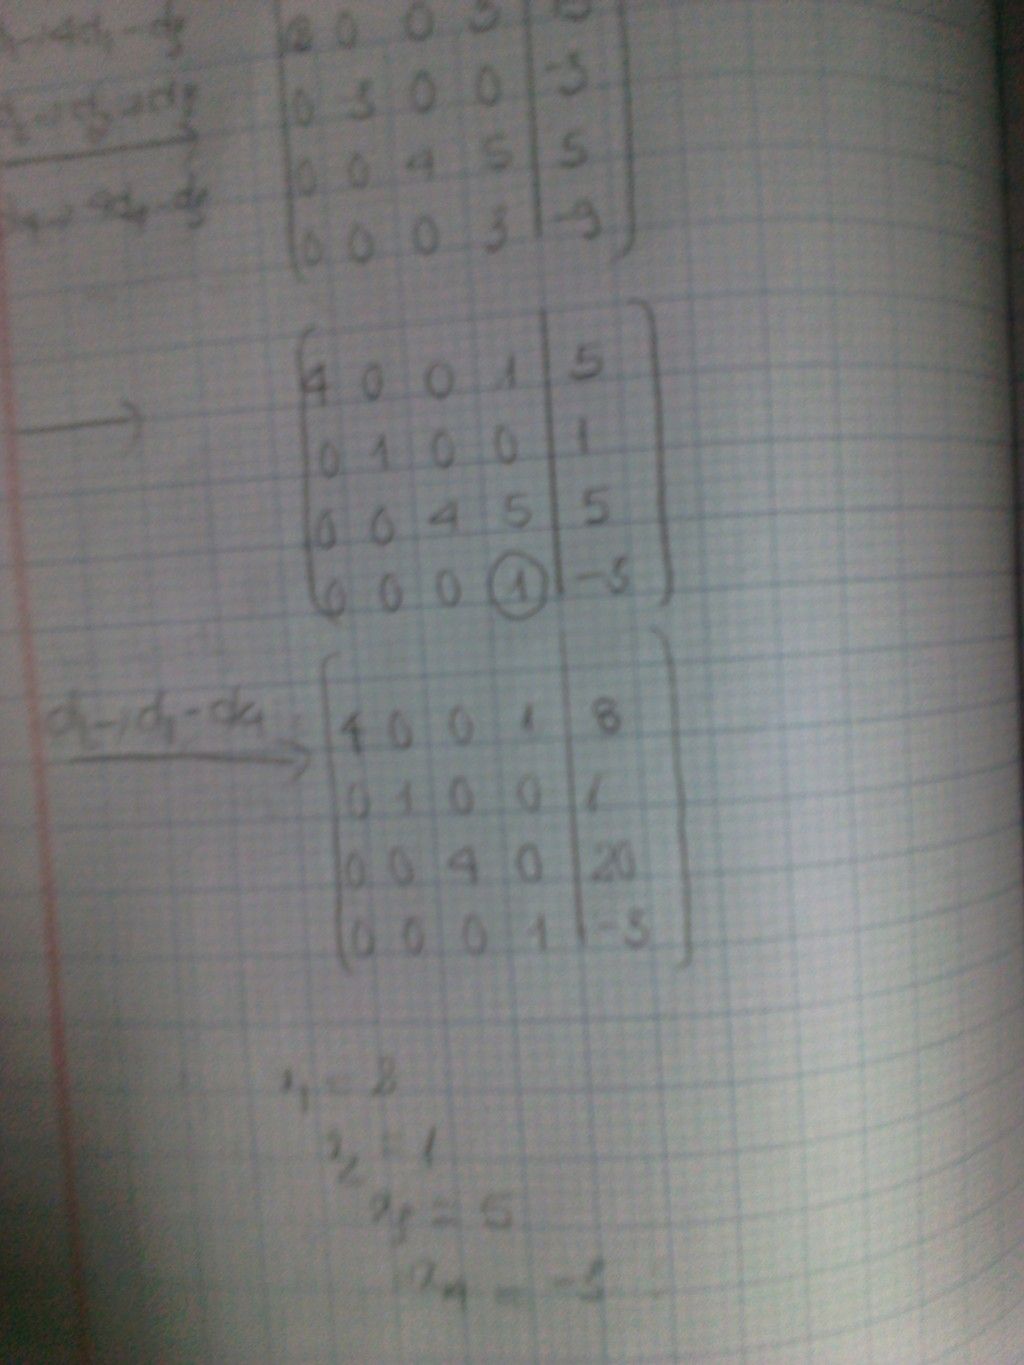 0 0 3
0 3 0 0 | -3
0 0 4 5 | 5
0 0 0 3 | -9
→
4 0 0 1 | 5
0 1 0 0 | 1
0 0 4 5 | 5
0 0 0 1 | -3
d1 → d1 - d4
4 0 0 1 | 8
0 1 0 0 | 1
0 0 4 0 | 20
0 0 0 1 | -3
x1 = 2
x2 = 1
x3 = 5
x4 = -3